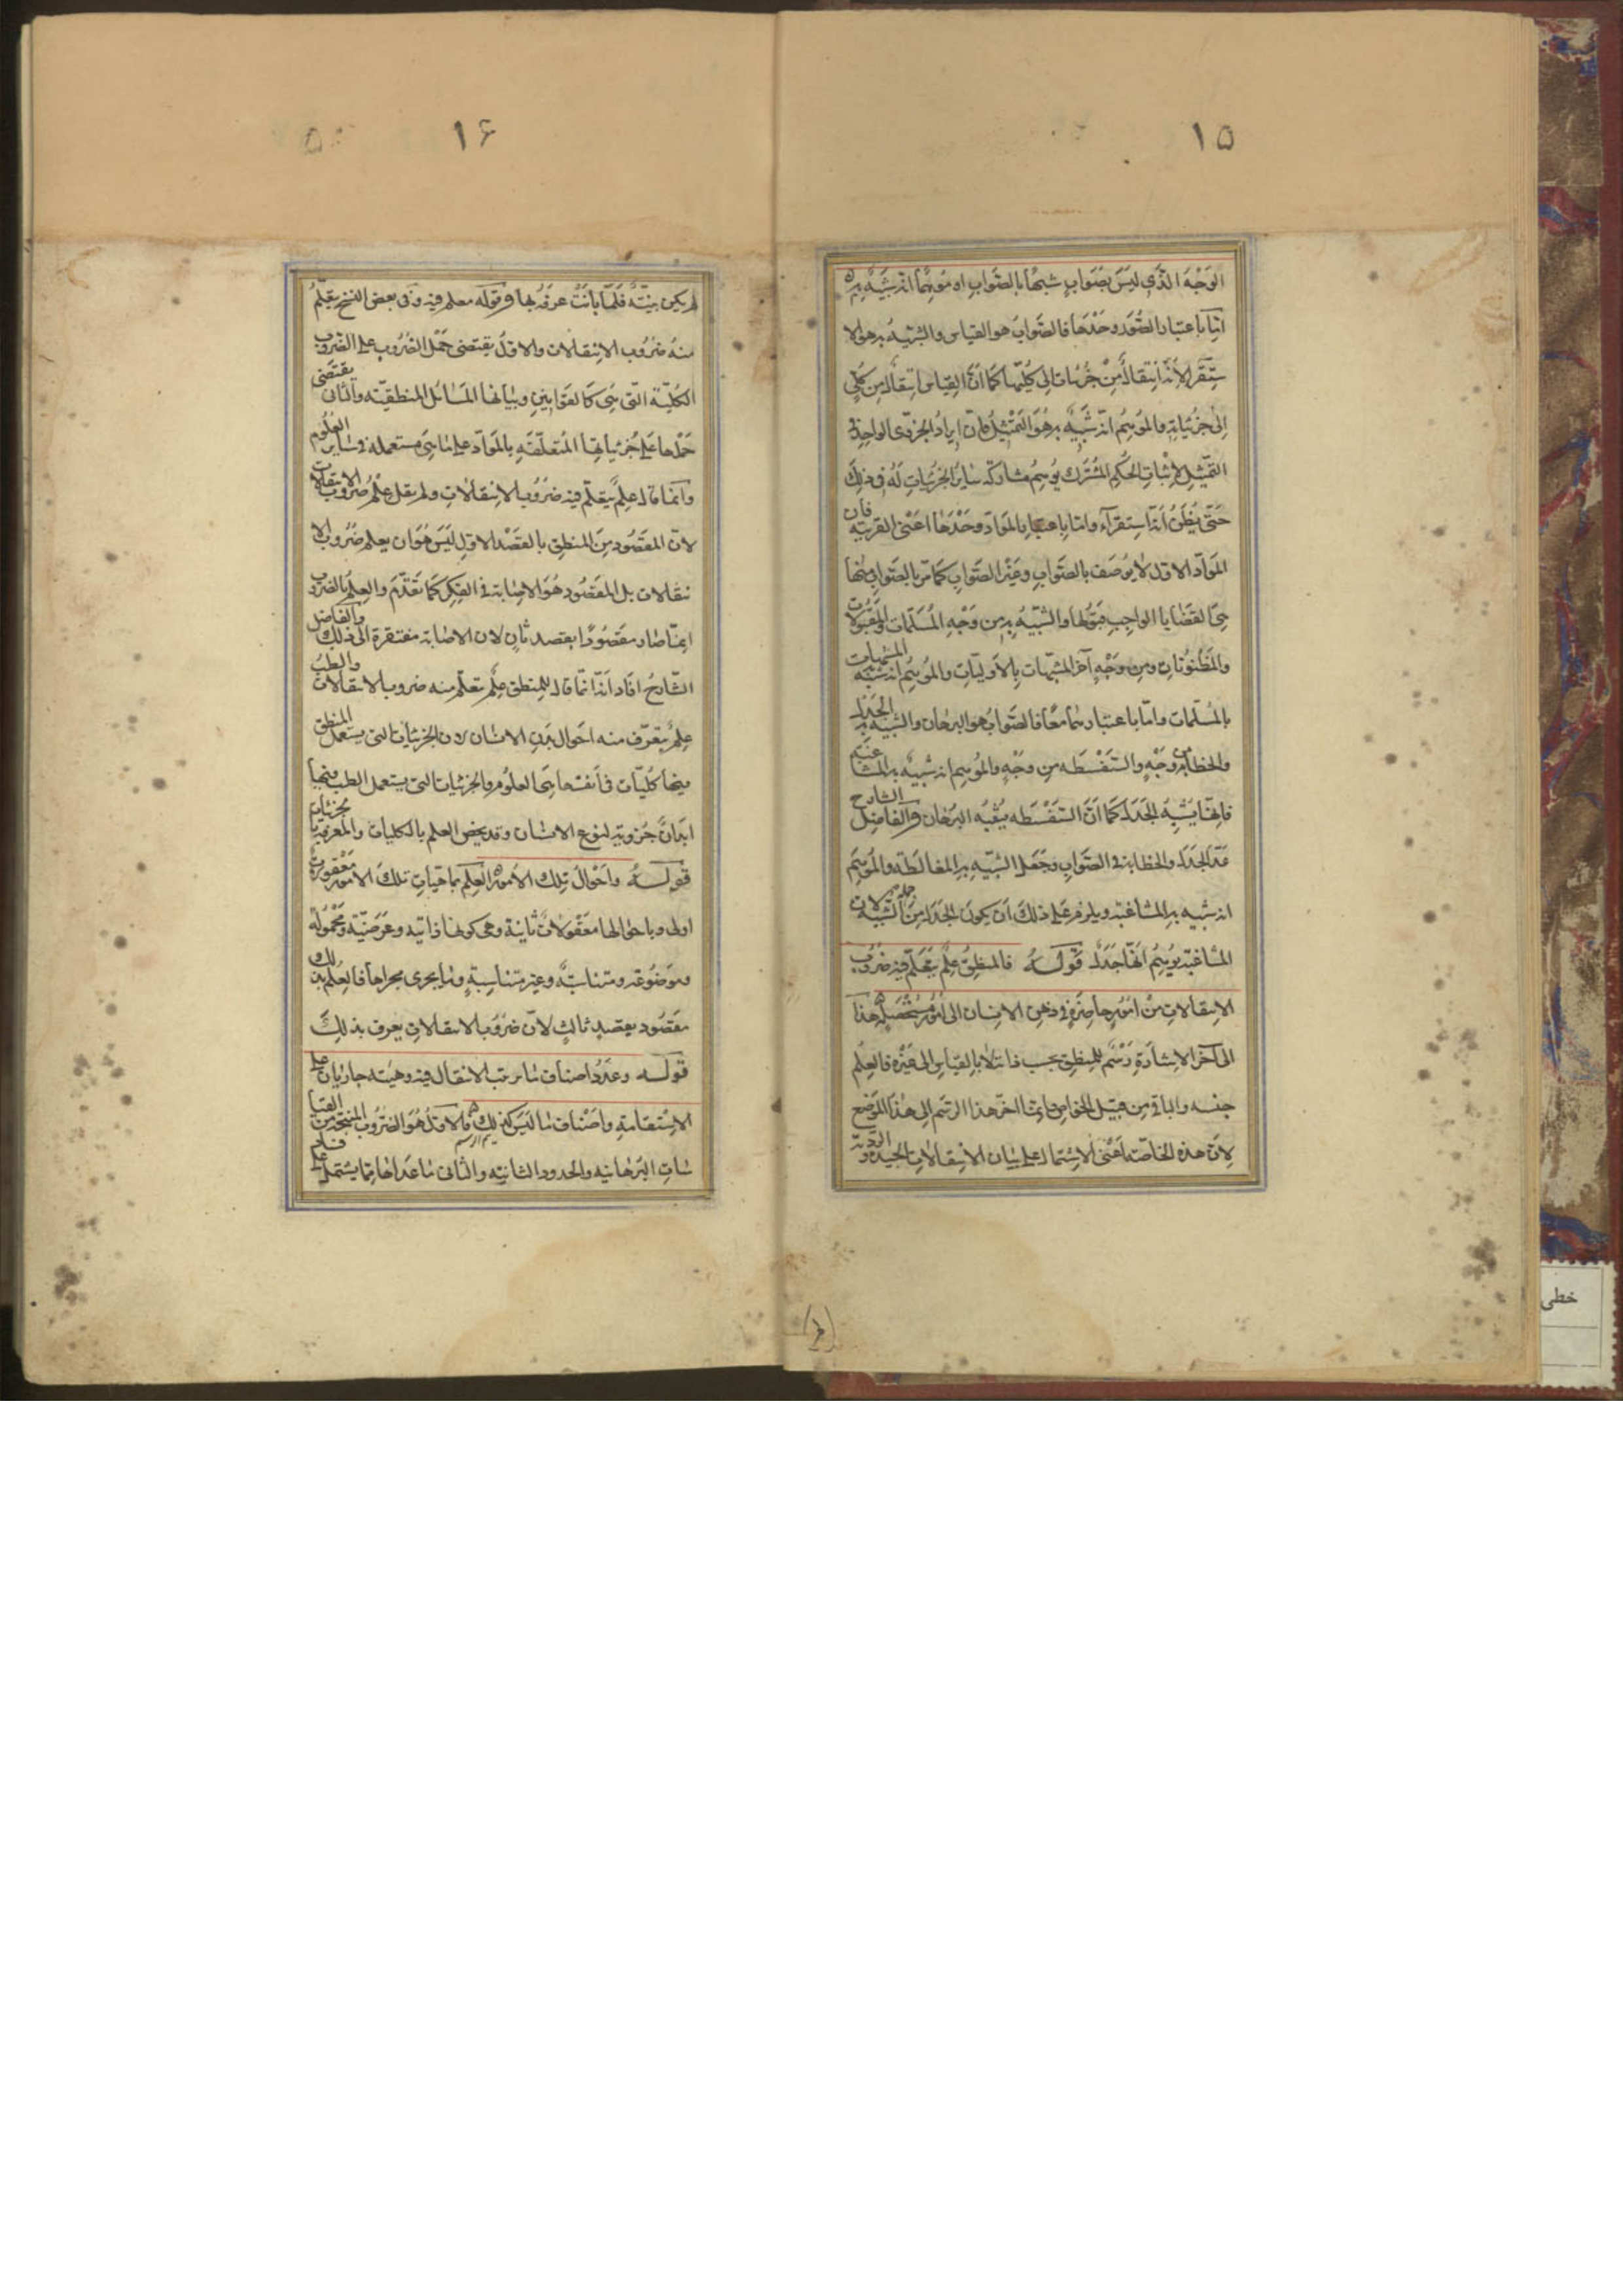 ١۵
الوَجْهَ الَّذي لَيسَ بصَوابٍ شبيهًا بالصَّوابِ او مُوهِمًا انّه شَبيهٌ به
امّا باعتبار الصُّوَر وحْدَها فالصَّوابُ هو القياس والشبيهُ به هو الا
ستقراء لأنّه انتقالٌ مِنْ جُزئياتٍ الى كُلّيّها كما انّ القياس انتقالٌ من كُلّيٍ
الى جُزئياتِه والمُوهِمُ انّه شَبيهٌ به هُوَ التمثيلُ فانّ ايرادُ الجزئى الواحِد فى
التمثيل لاثباتِ الحُكمِ المُشتَرك يُوهِمُ مشاركة سايرُ الجزئياتِ لَهُ فى ذلِكَ
حَتّى يُظَنُّ انّه استقرآء وامّا باعتبارِ الموادّ وحْدَها اعنى القريبه فان
الموادّ الاوَل لا يُوصَف بالصّوابِ وغَيْر الصّوابِ كما مرّ بالصّوابِ منها
هى القضايا الواجِبِ قبوُلها والشبيهُ بهِ من وَجْهٍ المُسَلّمات والمَقبولات
والمَظنُوناتِ ومِن وَجْهٍ آخر المشبّهات بالأوّليّاتِ والمُوهِمُ انّه شبيه المشبهات
بالمُسلّمات وامّا باعتبارهما مَعًا فالصَّوابُ هو البرهان والشبيه به الجدل
والخطابة مِن وَجْهٍ والسَّفْسَطه مِن وجْهٍ والمُوهِم انه شبيهٌ به المشاغبة
فانّها يُشْبِهُ الجدَل كما انّ السَّفْسَطه يُشْبُه البُرهان والفاضل الشارح
عَدّ الجدَل والخطابة فى الصَّوابِ وجَعل الشبيهِ به المغالطة والمُوهِم
انه شبيه به المشاغبة ويلزم على ذلكَ ان يكون الجدل من جملة الشبيه لان
المشاغبة يُوهِمُ انّها جَدَلٌ قولـه فالمنطِقُ علمٌ يتعلّم فيه ضُروُب
الانتقالاتِ مِنْ امُورٍ حاصِرَةٍ فى ذهنِ الانسان الى امُورٍ مُسْتَحْصَلَةٍ هذا
الى آخرِ الاشارَةِ رَسْمٌ للمنطِق بحسب ذاته لا بالقياسِ الى غَيْرِه فالعِلْم
جنسه والباقى مِن قبيل الخواصّ وانّما اخّر هذا الرسم الى هذا المَوضِع
لانّ هذه الخاصّه اعنى الاشتمال على بيان الانتقالات الجيّدة والرديّة
١۶
لم يكن بيّنةً فلمّا بانَتْ عرفهُ بها وقوله معلم فيه وفى بعض النسخ يتعلّم
منهُ ضروُب الانتقالات والاوّل يقتضى حَمْل الضروُب على الضروب
الكليّة التى هى كالقوانينِ وبيانها المَسائل المنطقيّه والثانى يقتضى
حَمْلها على جُزئياتها المُتعلّقَةِ بالموادّ على ما هى مستعمله فى ساير العلوم
وانما قال علمٌ يتعلّم فيه ضُروُب الانتقالاتِ ولم يقل علْمُ ضروب الانتقالات
لانّ المقصُود مِنَ المنطِقِ بالقَصْد الاوّل لَيسَ هُوَ ان يعلم ضُروُب الا
نتقالات بل المقصُود هُوَ الاصابة فى الفِكرِ كما تقَدّم والعِلمُ بالضروب
انمّا صار مقصُودًا بقصدٍ ثانٍ لان الاصابة مفتقرة الى ذلكَ والفاضل
الشّارحُ افاد انّه انّما قال للمنطق علمٌ يتعلّم منه ضروب الانتقالات والطبُ
علمٌ يتعرّف منه احَوال بَدَنِ الانسان لان الجزئيات التى يستعمل المنطق
فيها كلّيات فى اَنفسها هى العلوُم والجزئيات التى يستعمل الطب فيها
ابدانٌ جُزويّة لنوع الانسان وقد يخصّ العلم بالكليات والمعرفة بالجزئيات
قولـه واَحْوالُ تِلك الأمُورِ العِلم بماهيات تلكَ الأمورِ مَعْقولاتٌ
اولى وباحوالها مَعْقوُلاتٌ ثانِيَة وهى كونها ذاتيه وعَرَضيّة ومَحْمُولة
وموَضوُعة ومتناسبَة وغير متناسِبةٍ وما يجرى مجراها فالعِلْم بذلك
مقصُود بقصدٍ ثالثٍ لانّ ضروُب الانتقالات يعرف بذلِكَ
قولـه وعدَدُ اصناف ما يرتب الانتقال فيه وهيئته جاريَان على
الاِسْتقامَةِ واَصْناف ما لَيسَ كذلِك فالاوّلُ هُوَ الضرُوب المنتجة من القيا
سات البُرهانيه والحدود التامّة والثانى ما عَداها مِمّا يشتمل على فساد
خطى